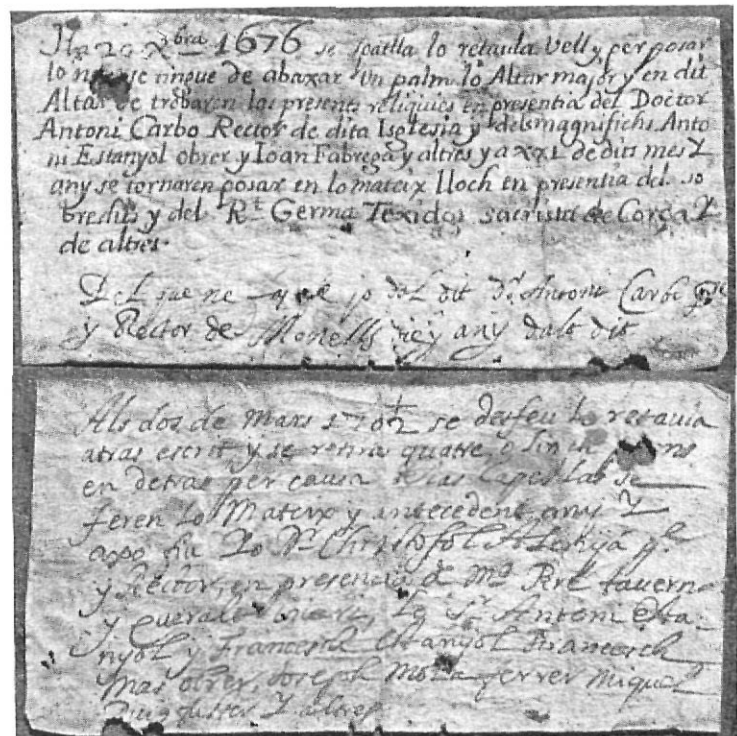 20 Xbra 1676 se scatlla lo retaula Vell y per posar
lo se tingue de abaxar un palm lo Altar major y en dit
Altar se trobaren las presents reliquies en presentia del Doctor
Antoni Carbo Rector de dita Isglesia y dels magnifichs Anto
ni Estanyol obrer y Ioan Fabrega y altres y a XXI de dits mes Y
any se tornaren posar en lo mateix lloch en presentia del so
bredits y del Rt. Germa Texidor sacrista de Corça Y
de altres.
Del que ne jo lo dit Dr. Antoni Carbo
y Rector de Monells die y any dalt dit
Als dos de Mars 1702 se desfeu lo retaula
atras escrit y se retira quatre o sinch
en detras per causa las Capellas se
feren lo Mateix y antecedent any Y
axo fiu Lo Dr. Christofol
y Rector, en presencia de Mo. Pere tavern
y queralt Le Sr. Antoni Esta
nyol y Francesch Estanyol Francesch
Mas obrer, Joseph ferrer Miquel
Puig fuster Y altres